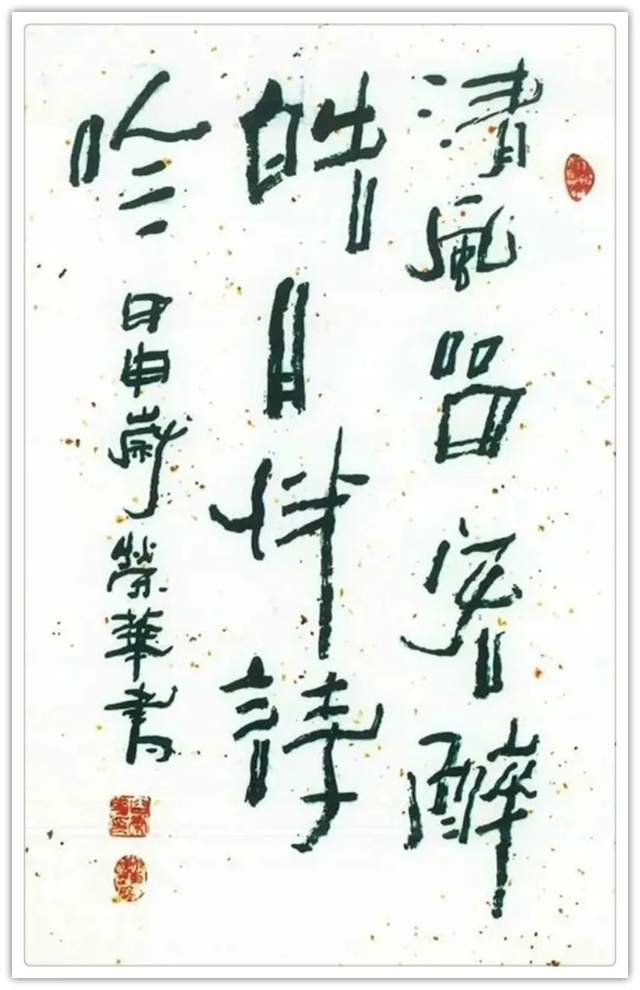 清風品客醉
皓月伴詩
吟 丙申歲 榮華書